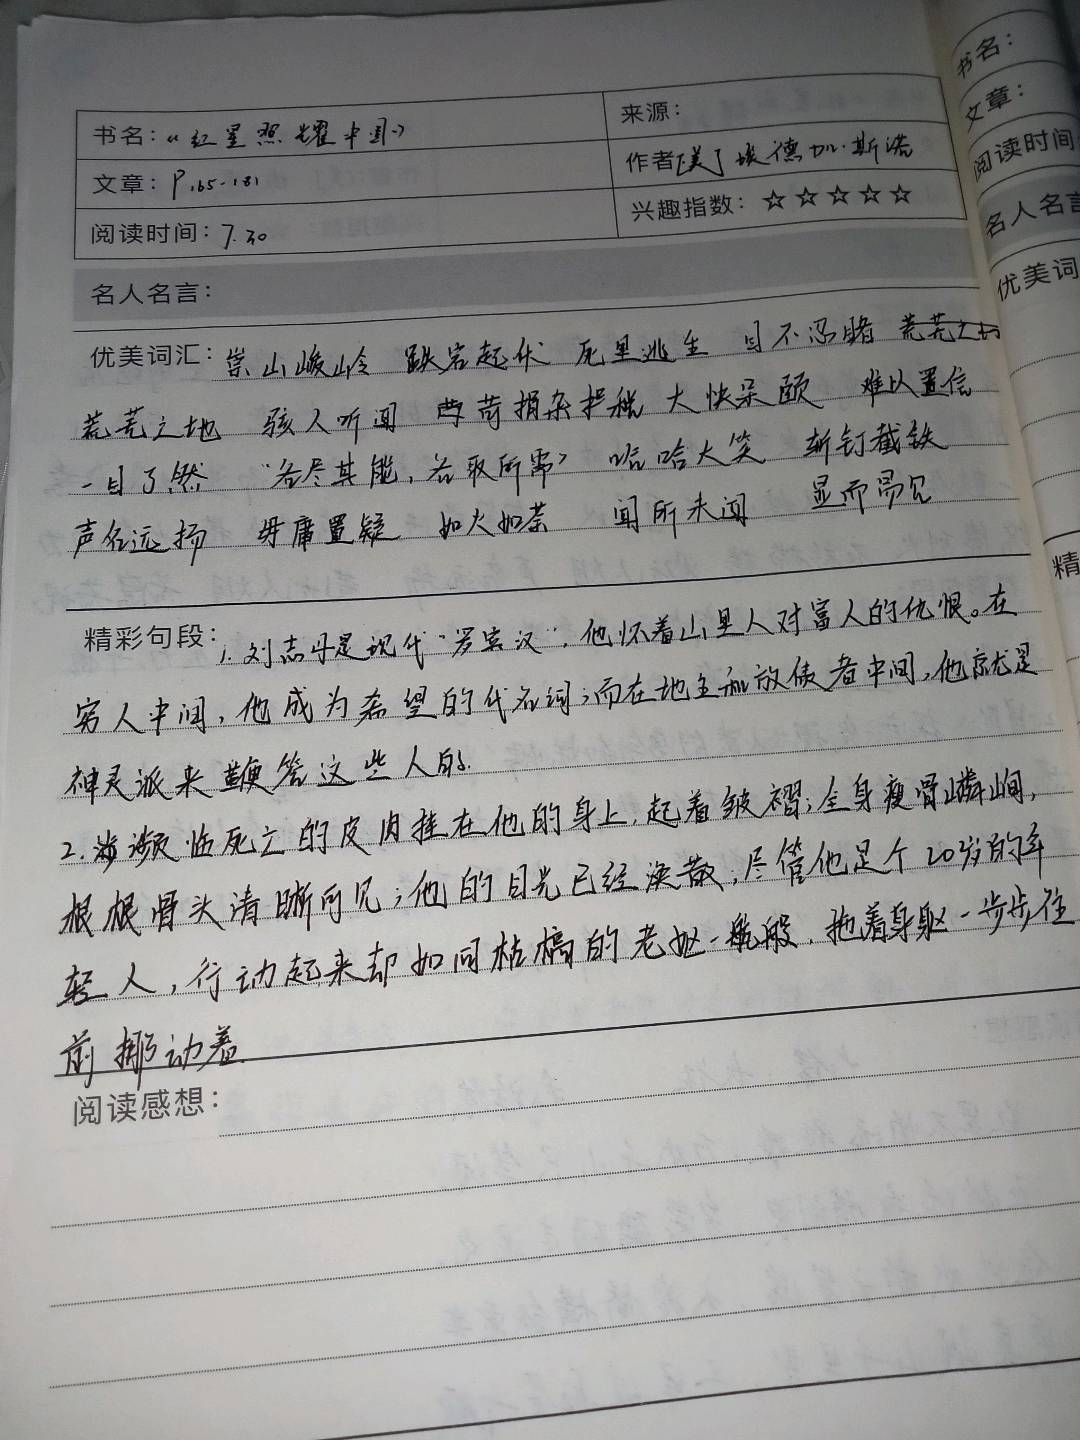 书名：《红星照耀中国》
来源：
文章：P165-181
作者[美]埃德加·斯诺
阅读时间：7.30
兴趣指数：☆☆☆☆☆
名人名言：
优美词汇：崇山峻岭 跌宕起伏 死里逃生 目不忍睹 荒芜之地
荒芜之地 骇人听闻 苛捐杂税 大快朵颐 难以置信
一目了然 “各尽其能，各取所需” 哈哈大笑 斩钉截铁
声名远扬 毋庸置疑 如火如荼 闻所未闻 显而易见
精彩句段：1.刘志丹是现代“罗宾汉”，他怀着山里人对富人的仇恨。在
穷人中间，他成为希望的代名词；而在地主和放债者中间，他就是
神灵派来鞭笞这些人的.
2.濒临死亡的皮肉挂在他的身上，起着皱褶；全身瘦骨嶙峋，
根根骨头清晰可见；他的目光已经涣散；尽管他是个20岁的年
轻人，行动起来却如同枯槁的老妪一般，拖着身躯一步步往
前挪动着.
阅读感想：
书名：
文章：
阅读时间
名人名言
优美词
精